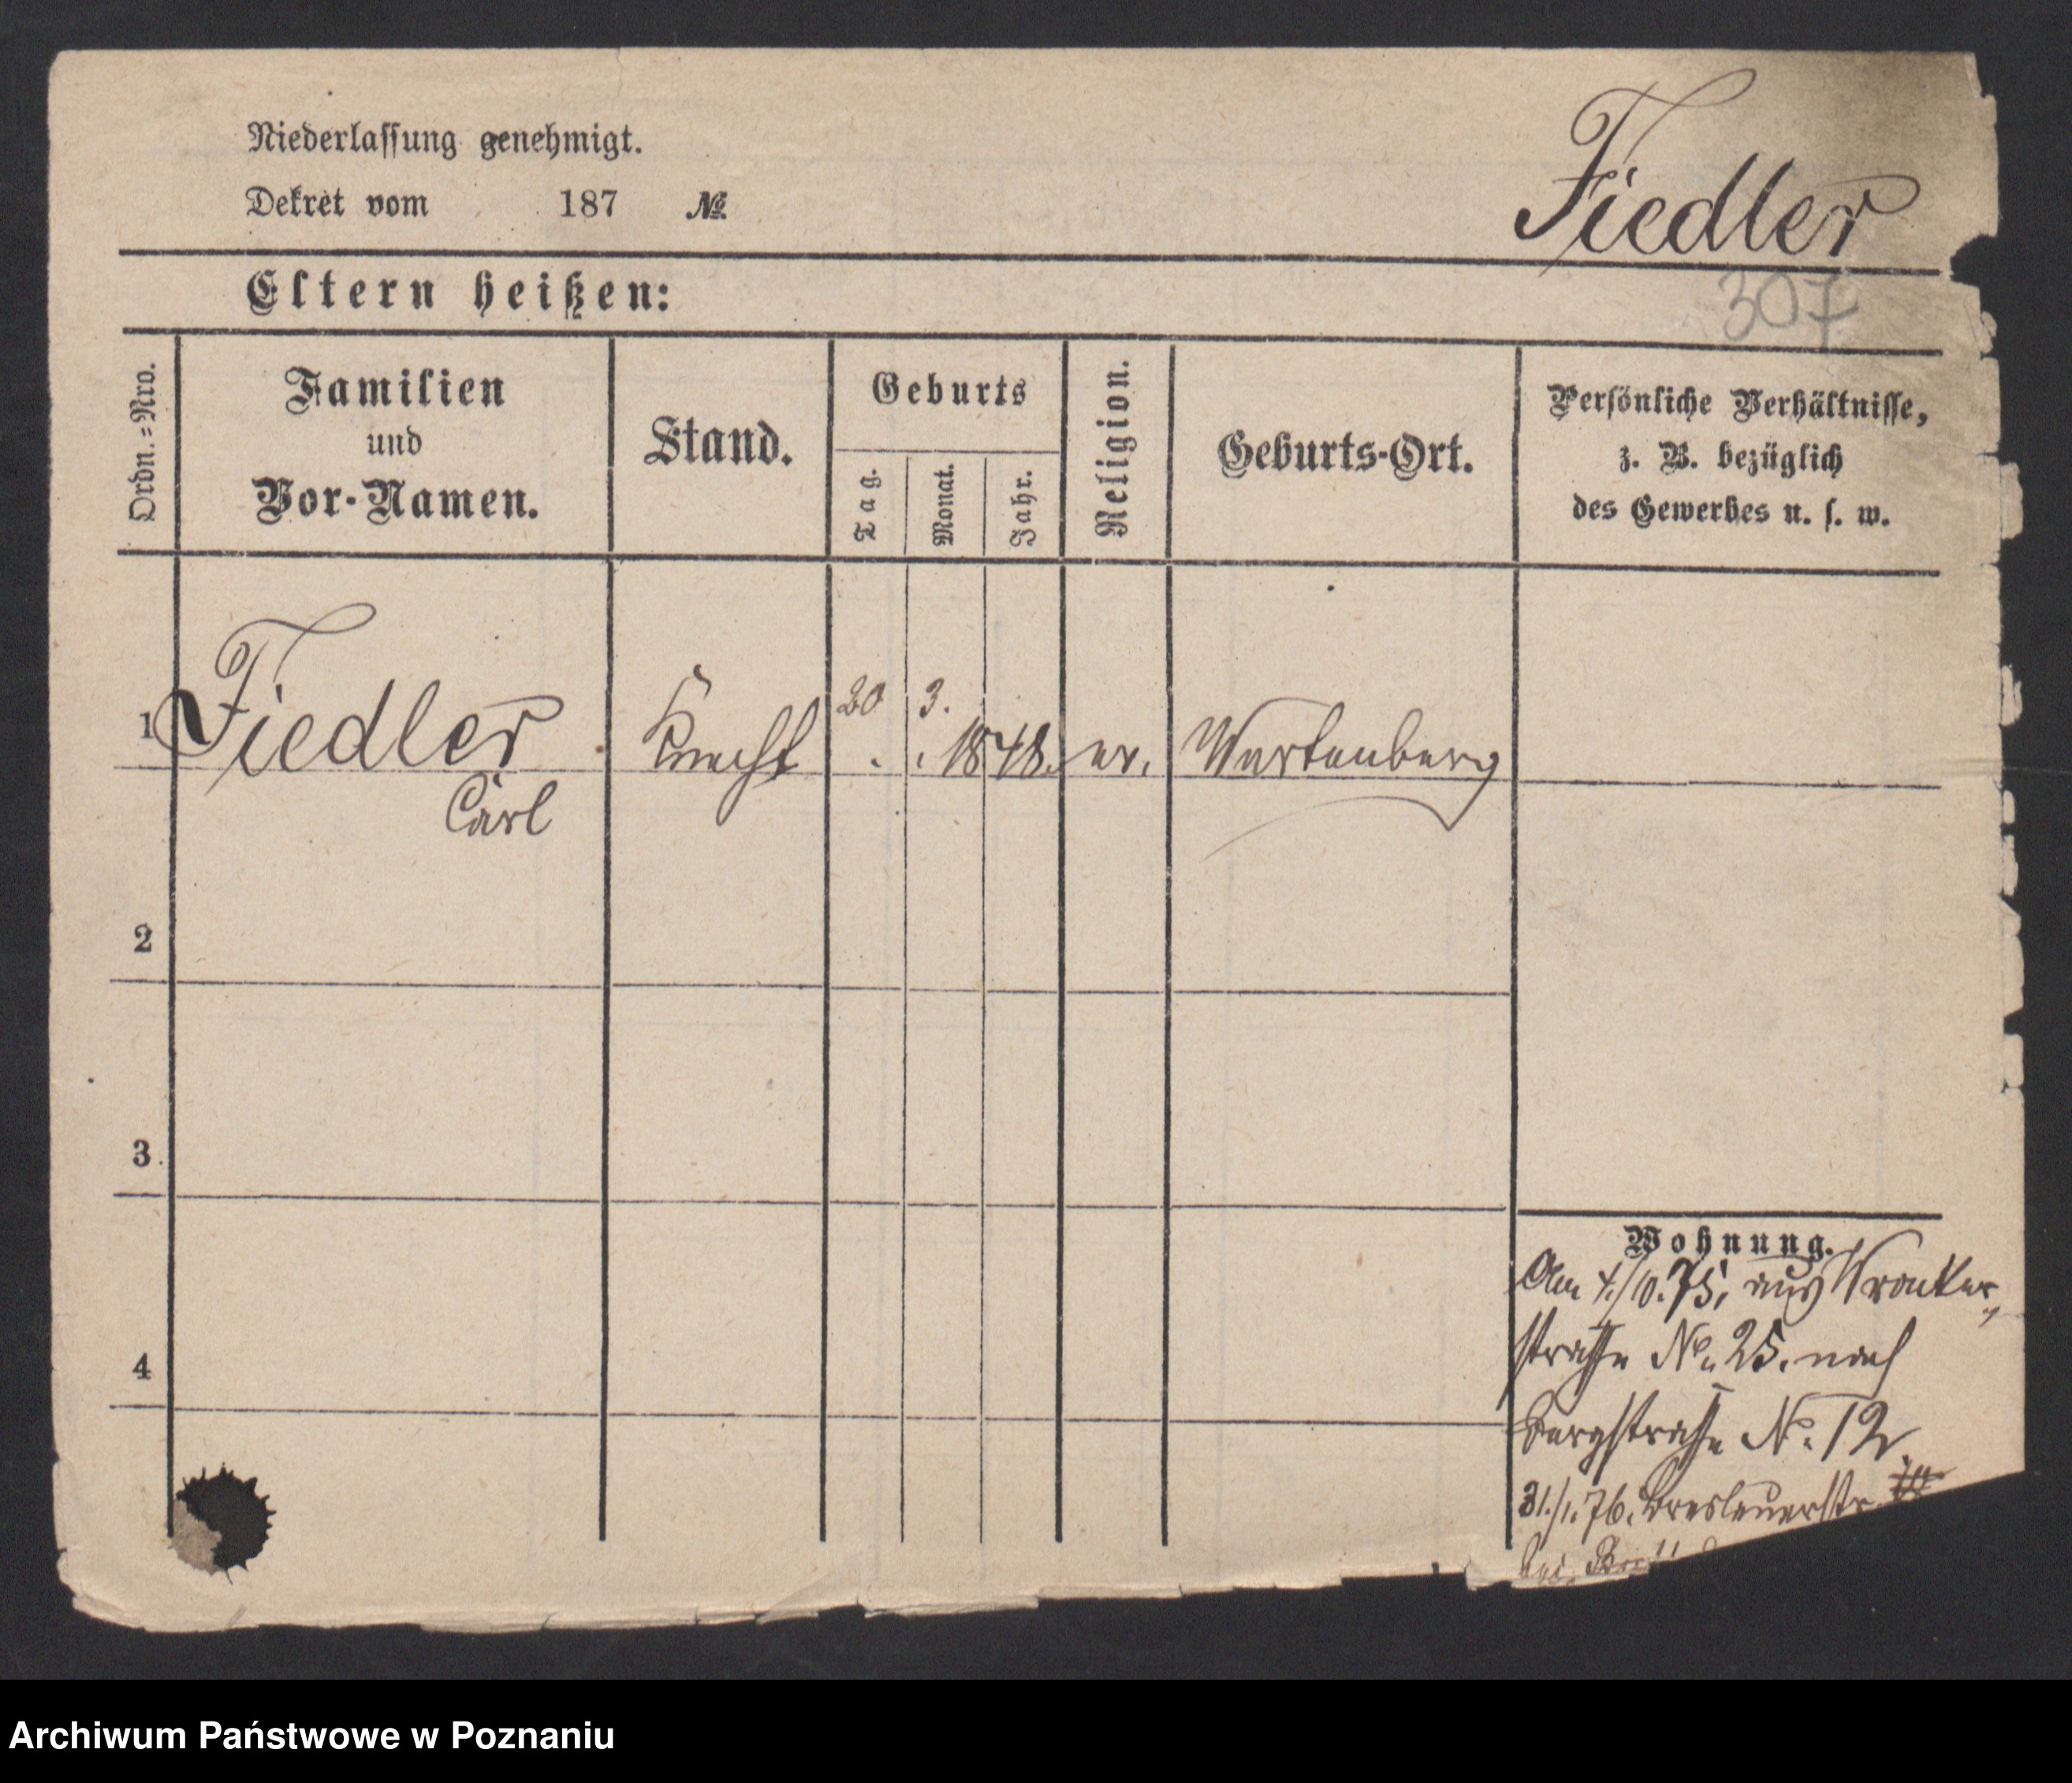 Niederlassung genehmigt.
Dekret vom 187 №
Fiedler
307
Eltern heißen:
Ordn.=Nro.
Familien
und
Vor-Namen.
Stand.
Geburts
Tag.
Monat.
Jahr.
Religion.
Geburts-Ort.
Persönliche Verhältnisse,
z. B. bezüglich
des Gewerbes u. s. w.
1 Fiedler Knecht 20 3. 1848. ev. Wartenberg
Carl
2
3
4
Wohnung.
Am 4./10.75, aus Wronker
straße No. 25. nach
Bergstraße No. 12
31./1.76. Breslauerstr.
bei
Archiwum Państwowe w Poznaniu